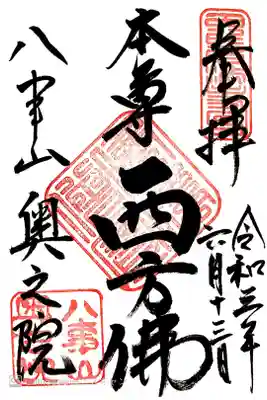 奉拝
令和三年
六月十三日
本尊 西方佛
八事山 奥之院
八事山